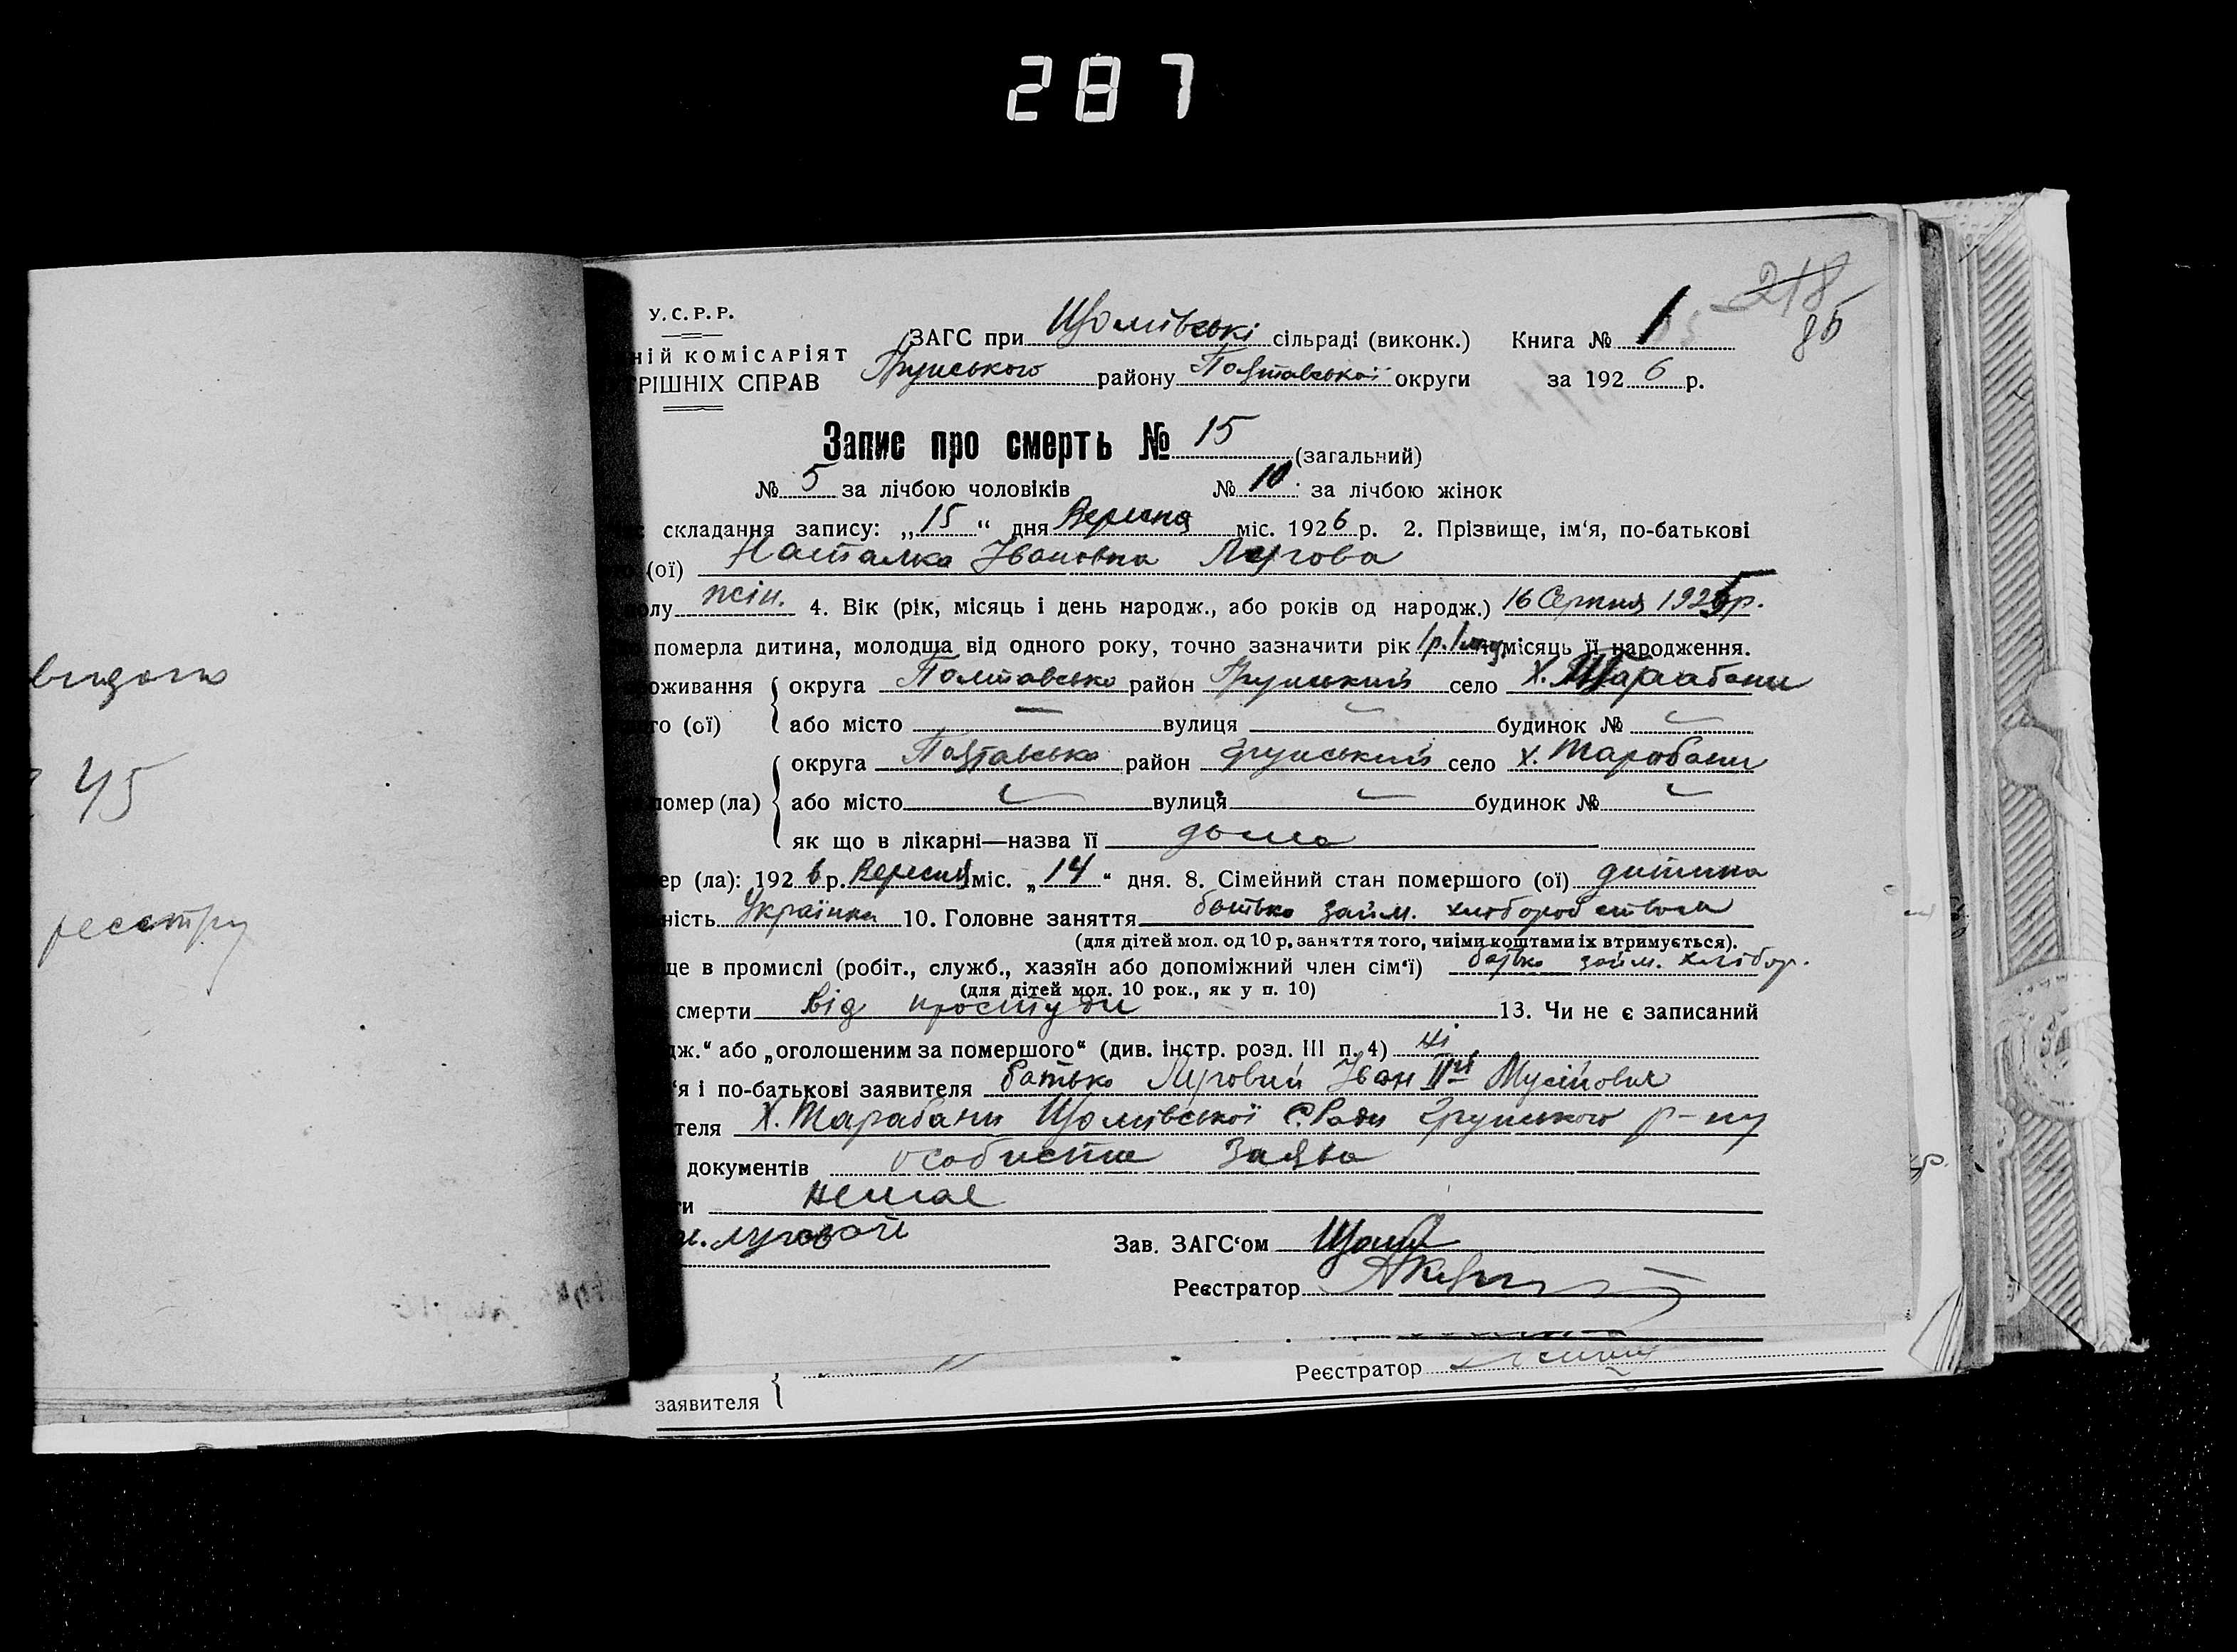 287
218
85
У.С.Р.Р.
ЗАГС при Щомівські сільраді (виконк.) Книга № 1
НІЙ КОМІСАРІЯТ
Грунського району Полтавської округи за 1926 р.
РІШНІХ СПРАВ
Запис про смерть № 15 (загальний)
№ 5 за лічбою чоловіків № 10 за лічбою жінок
складання запису: „15“ дня Вересня міс. 1926 р. 2. Прізвище, ім‘я, по-батькові
(ої) Насталка Івановна Лугова
олу жін. 4. Вік (рік, місяць і день народж., або років од народж.) 16 Серпня 1925р.
померла дитина, молодша від одного року, точно зазначити рік 1р. 1 місяць її народження.
оживання округа Полтавська район Грунський село Х. Тарабани
го (ої) або місто — вулиця будинок №
округа Полтавська район Грунський село х. Тарабани
помер (ла) або місто вулиця будинок №
як що в лікарні—назва її дома
ер (ла): 1926 р. Вересня міс. „14“ дня. 8. Сімейний стан помершого (ої) дитина
ність Українка 10. Головне заняття батько займ. хліборобством
(для дітей мол. од 10 р. заняття того, чиїми коштами їх втримується).
ще в промислі (робіт., служб., хазяїн або допоміжний член сім‘ї) батько займ. хлібор.
(для дітей мол. 10 рок., як у п. 10)
смерти від простуди 13. Чи не є записаний
дж.“ або „оголошеним за помершого“ (див. інстр. розд. III п. 4) ні
‘я і по-батькові заявителя батько Луговий Іван ІІй Мусійович
теля Х. Тарабани Щомівської С.Ради Грунського р-ну
документів особиста Заява
ти немає
и. луговой
Зав. ЗАГС‘ом
Реєстратор
Реєстратор
заявителя
видано
45
реєстру